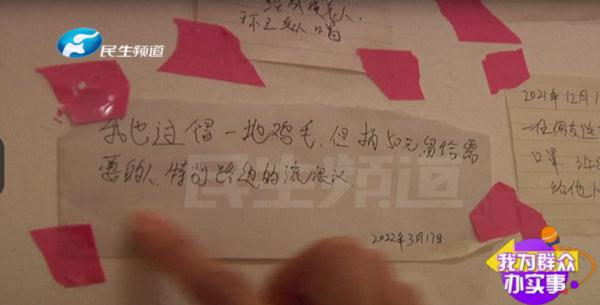 民生频道
环卫工人口罩
我也过得一地鸡毛,但捐50元留给需
要的人,特别路边的流浪汉.
2022年3月17日
2021年12月1
一位网友送
口罩
给他
民生频道
我为群众
办实事